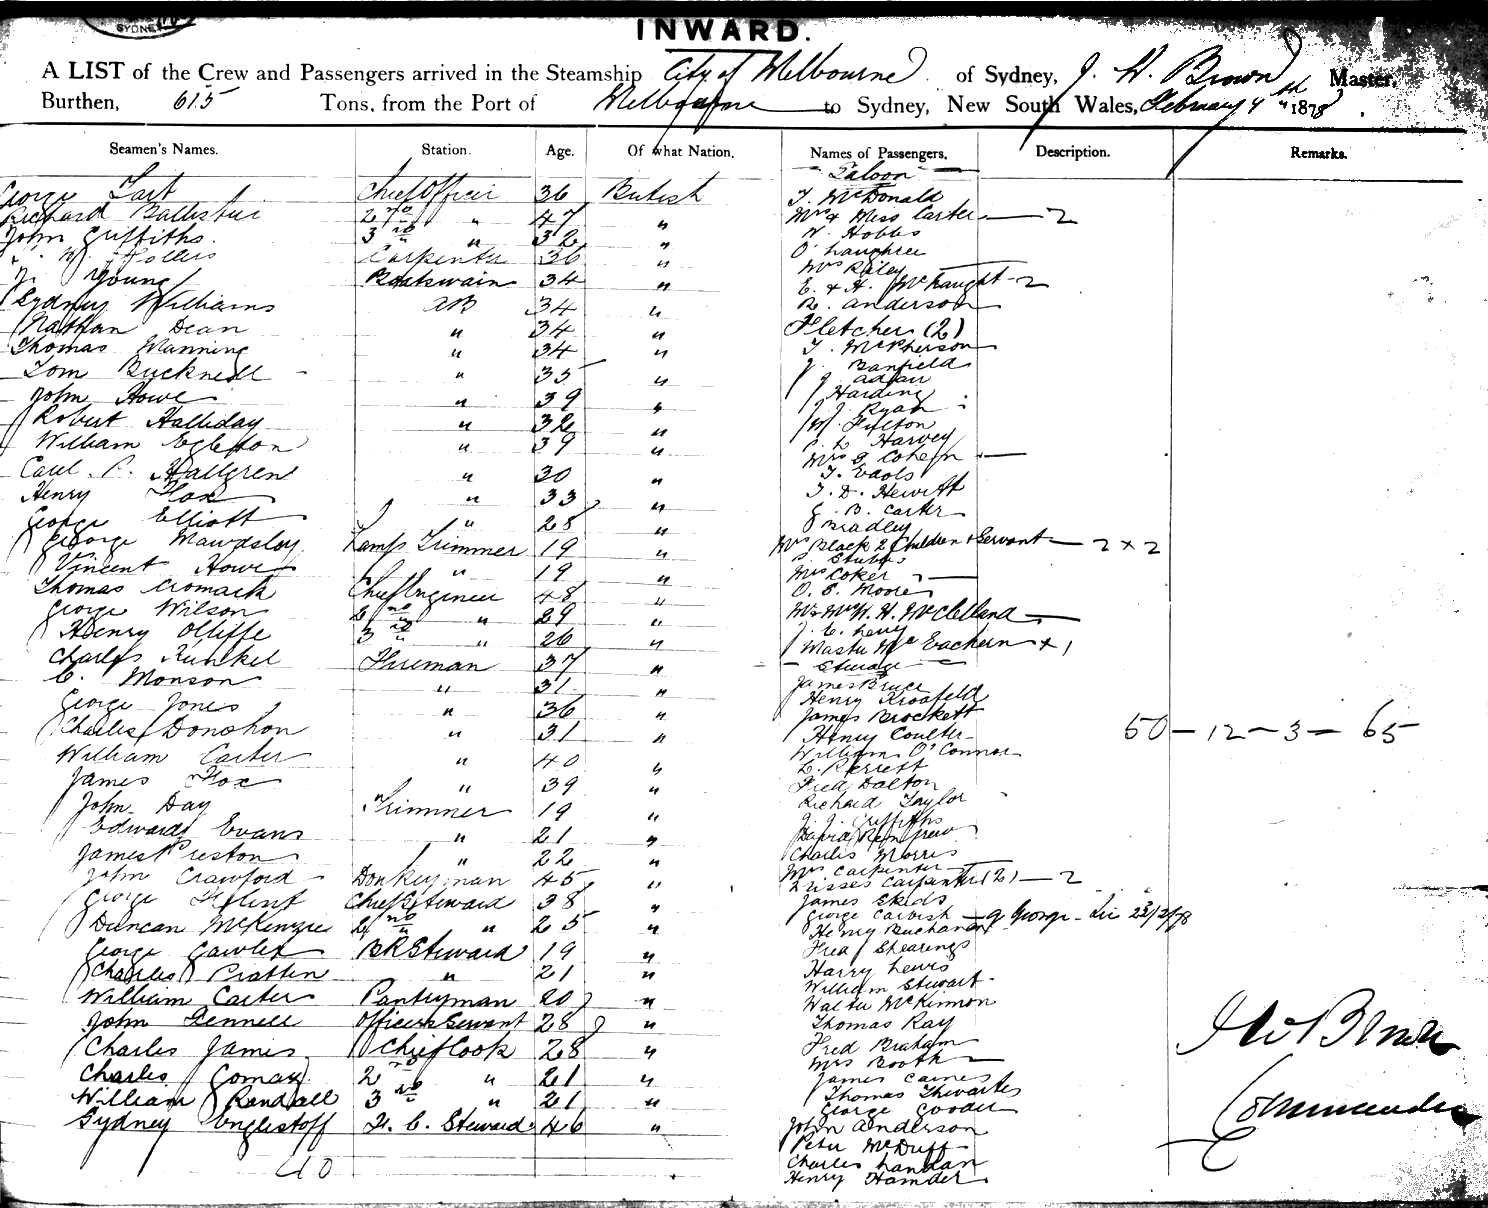 SYDNEY
INWARD.
A LIST of the Crew and Passengers arrived in the Steamship City of Melbourne of Sydney, J. W. Brown Master,
Burthen, 615 Tons, from the Port of Melbourne to Sydney, New South Wales, February 4th 1878.
Seamen's Names. Station. Age. Of what Nation. Names of Passengers. Description. Remarks.
George Tart Chief Officer 36 British
Richard Ballister 2nd " 47 "
John Griffiths. 3rd " 32 "
Carpenter 36 "
J. Young Boatswain 34 "
Sydney Williams AB 34 "
Nathan Dean " 34 "
Thomas Manning " 34 "
Tom Bucknell " 35 "
John Howe " 39 "
Robert Halliday " 32 "
William Egleston " 39 "
Carl P. Hallgrene " 30 "
Henry Fox " 33 "
George Elliott " 28 "
George Mawdsley Lamp Trimmer 19 "
Vincent Howe " 19 "
Thomas Cromack Chief Engineer 48 "
George Wilson 2nd " 29 "
Henry Olliffe 3rd " 26 "
Charles Kunkel Fireman 37 "
C. Monson " 31 "
George Jones " 36 "
Charles Donohon " 31 "
William Carter " 40 "
James Fox " 39 "
John Day Trimmer 19 "
Edward Evans " 21 "
James Preston " 22 "
John Crawford Donkeyman 45 "
George Flint Chief Steward 38 "
Duncan McKenzie 2nd " 25 "
George Cawley B R Steward 19 "
Charles Pratten " 21 "
William Carter Pantryman 20 "
John Fennell Officers Servant 28 "
Charles James Chief Cook 28 "
Charles Gomaz 2nd " 21 "
William Randall 3rd " 21 "
Sydney Englestoff F. C. Steward 46 "
40
Saloon
T. McDonald
Mrs & Miss Carter — 2
W. Hobbs
O'Laughree
Mrs Raley
E. & H. McNaught - 2
R. Anderson
Fletcher (2)
T. McPherson
J. Banfield
J. Adair
Harding
J. J. Ryan
W. Fulton
J. L. Harvey
Mrs G Cohen —
T. Eaols
T. D. Hewitt
G. B. Carter
Bradley
Mrs Black 2 Children & Servant — 2 x 2
Stubbs
Mrs Coker —
O. E. Moore
Mr & Mrs W. H. McClelland —
J. C. Levy
Master McEachern x 1
Steerage
James Bruce
Henry Kroafeld
James Brockett
Henry Coulter
William O'Connor
L. Perrett
Fred Dalton
Richard Taylor
J. J. Griffiths
David Renfrew
Charles Morris
Mrs Carpenter
2 Misses Carpenter (2) — 2
James Ekids
George Carbish — G George - Lie 23/2/78
Henry Buchanan
Fred Shearings
Harry Lewis
William Stewart
Walter McKinnon
Thomas Ray
Fred Braham
Mrs Booth —
James Caines
Thomas Thwartes
George Gooder
John Anderson
Peter McDuff
Charles Landan
Henry Hamder
50 — 12 — 3 — 65
J W Brown
Commander